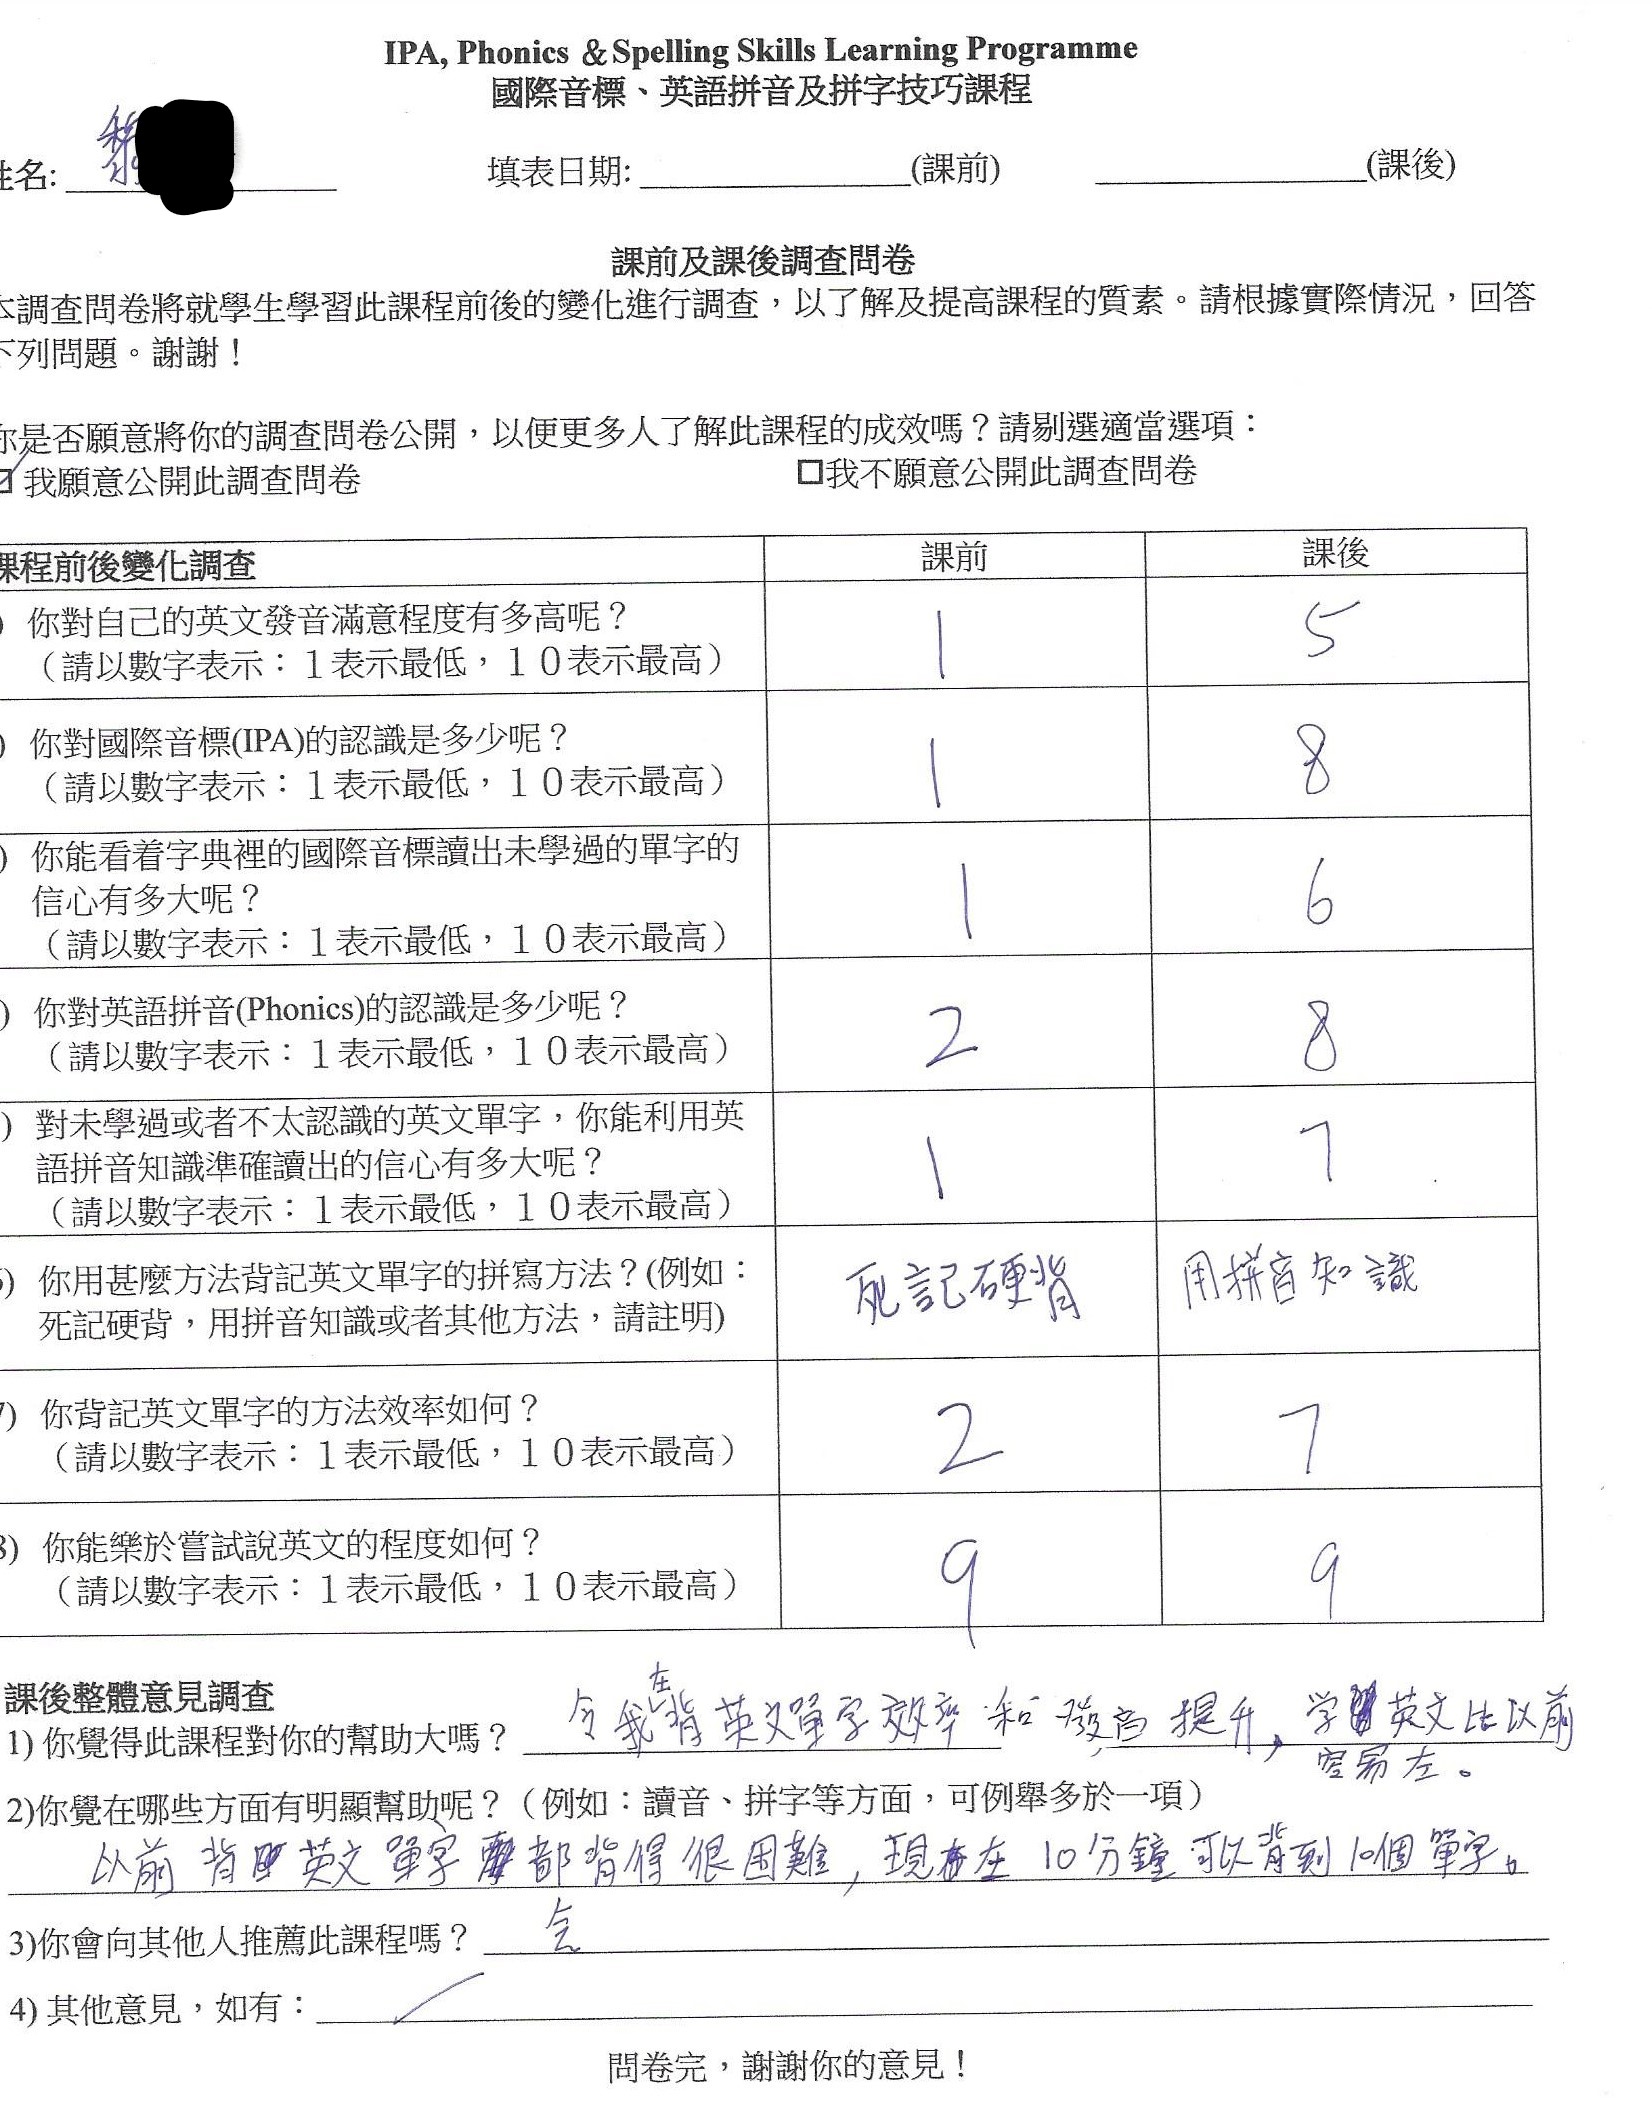 IPA, Phonics & Spelling Skills Learning Programme
國際音標、英語拼音及拼字技巧課程
姓名: 黎 填表日期: (課前) (課後)
課前及課後調查問卷
本調查問卷將就學生學習此課程前後的變化進行調查，以了解及提高課程的質素。請根據實際情況，回答
下列問題。謝謝！
你是否願意將你的調查問卷公開，以便更多人了解此課程的成效嗎？請剔選適當選項：
☑ 我願意公開此調查問卷 ☐我不願意公開此調查問卷
課程前後變化調查 課前 課後
) 你對自己的英文發音滿意程度有多高呢？
（請以數字表示：１表示最低，１０表示最高） 1 5
) 你對國際音標(IPA)的認識是多少呢？
（請以數字表示：１表示最低，１０表示最高） 1 8
) 你能看着字典裡的國際音標讀出未學過的單字的
信心有多大呢？
（請以數字表示：１表示最低，１０表示最高） 1 6
) 你對英語拼音(Phonics)的認識是多少呢？
（請以數字表示：１表示最低，１０表示最高） 2 8
) 對未學過或者不太認識的英文單字，你能利用英
語拼音知識準確讀出的信心有多大呢？
（請以數字表示：１表示最低，１０表示最高） 1 7
6) 你用甚麼方法背記英文單字的拼寫方法？(例如：
死記硬背，用拼音知識或者其他方法，請註明) 死記硬背 用拼音知識
7) 你背記英文單字的方法效率如何？
（請以數字表示：１表示最低，１０表示最高） 2 7
8) 你能樂於嘗試說英文的程度如何？
（請以數字表示：１表示最低，１０表示最高） 9 9
課後整體意見調查
1) 你覺得此課程對你的幫助大嗎？ 令我在背英文單字效率和發音提升，学英文比以前
容易左。
2)你覺在哪些方面有明顯幫助呢？（例如：讀音、拼字等方面，可例舉多於一項）
以前背英文單字都背得很困難，現在10分鐘可以背到10個單字。
3)你會向其他人推薦此課程嗎？ 会
4) 其他意見，如有：
問卷完，謝謝你的意見！